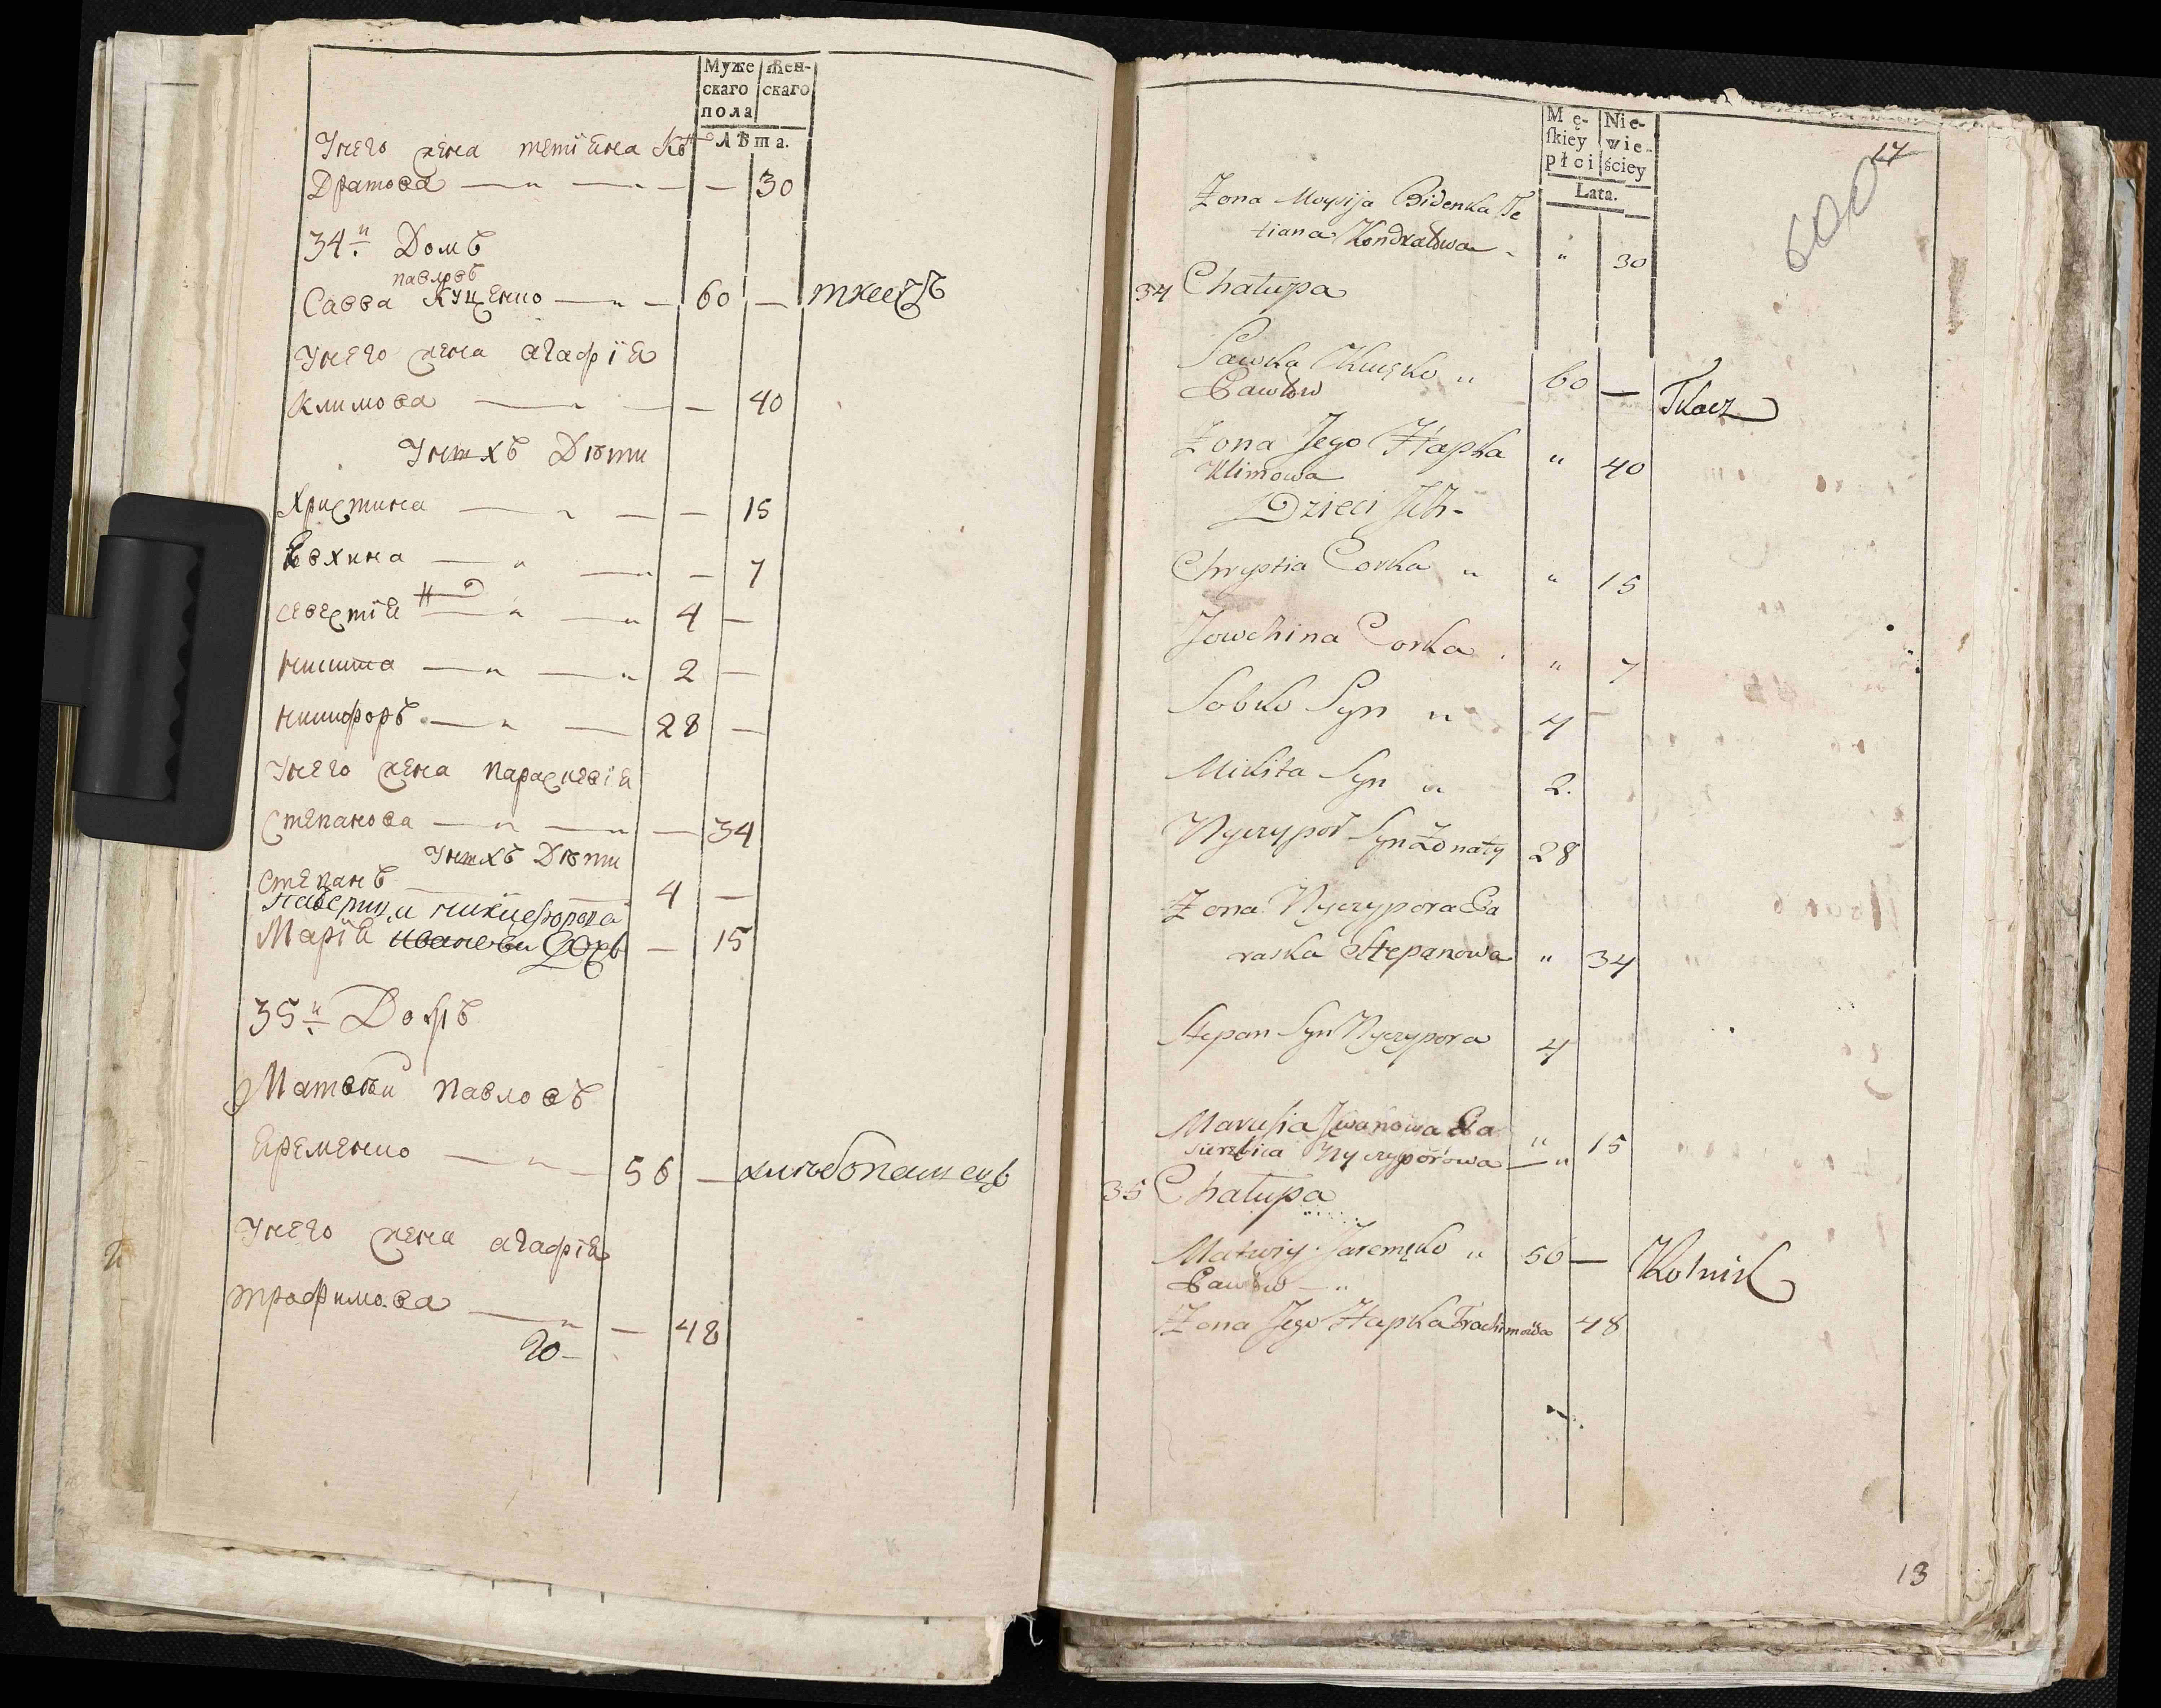 Муже скаго пола
Жен- скаго
Лѣта.
Унего жена тетiяна Ко
Дратова — 30
34й Домъ
павловъ
Савва Куценко — 60 — ткачъ
Унего жена агафiя
Климова — 40
Унихъ Дѣти
Христина — 15
Евхина — 7
севестiя — 4 —
никита — 2 —
никифоръ — 28 —
Унего жена параскевiя
Степанова — 34
Унихъ Дѣти
Степанъ — 4 —
никифорова
Марiя иванова — 15
35й Домъ
Матвѣй павловъ
Яременко — 56 — хлѣбопашецъ
Унего жена агафiя
трофимова — 48
го-
Mę- ſkiey płci
Nie- wie- ściey
Lata.
17
600
Zona Moysija Bidenka Te
tiana Kondratowa " 30
34 Chałupa
Sawka Kucęko " 60 — Tkacz
Pawłow
Zona Jego Hapka " 40
Klimowa
Dzieci Ich-
Chrystia Corka " " 15
Jowchina Corka " 7
Sobko Syn " 4 —
Mikita Syn " 2.
Nyczypor Syn Zonaty 28
Zona Nyczypora Pa
raska Stepanowa " 34
Stepan Syn Nyczypora 4
Marusia Jwanowa Pa " 15
sierzbica Nyczyporowa — "
35 Chałupa
Matwiy Jaremęko " 56 — Rolnik
Pawłow — "
Zona Jego Hapka Trochimowa 48
13